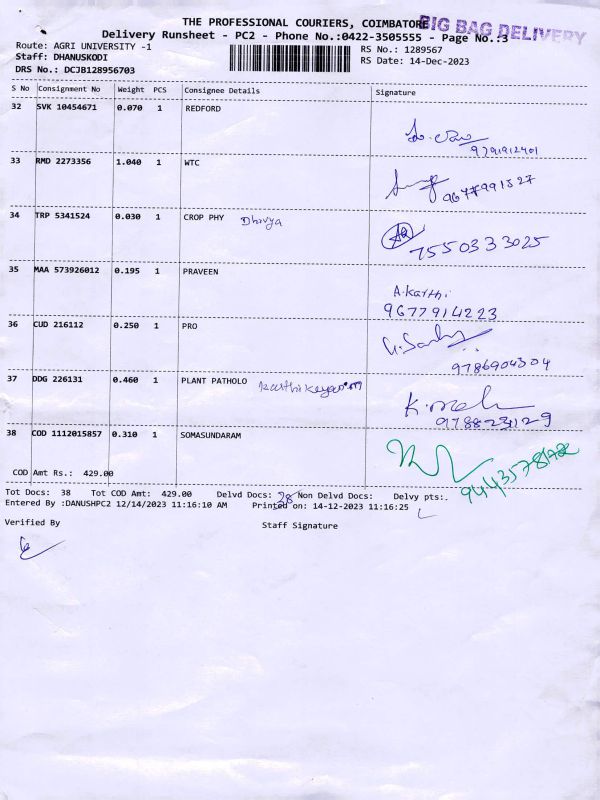 THE PROFESSIONAL COURIERS, COIMBATORE
BIG BAG DELIVERY
Delivery Runsheet - PC2 - Phone No.:0422-3505555 - Page No.:3
Route: AGRI UNIVERSITY -1
RS No.: 1289567
Staff: DHANUSKODI
RS Date: 14-Dec-2023
DRS No.: DCJB128956703
S No Consignment No Weight PCS Consignee Details Signature
32 SVK 10454671 0.070 1 REDFORD
9791912401
33 RMD 2273356 1.040 1 WTC
9677991527
34 TRP 5341524 0.030 1 CROP PHY Dhivya
7550333025
35 MAA 573926012 0.195 1 PRAVEEN
A.Karthi
9677914223
36 CUD 216112 0.250 1 PRO
9786904304
37 DDG 226131 0.460 1 PLANT PATHOLO Karthikeyan
38 COD 1112015857 0.310 1 SOMASUNDARAM
COD Amt Rs.: 429.00
Tot Docs: 38 Tot COD Amt: 429.00 Delvd Docs: 38 Non Delvd Docs: Delvy pts:.
Entered By :DANUSHPC2 12/14/2023 11:16:10 AM Printed on: 14-12-2023 11:16:25
Verified By Staff Signature